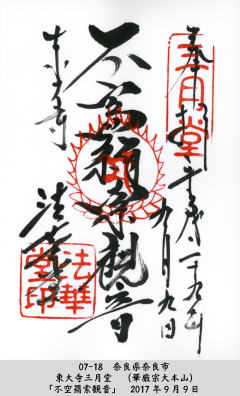 奉拝
平成二十九年
九月九日
不空羂索観音
東大寺
法華堂
三月堂
法華
堂印
07-18 奈良県奈良市
東大寺三月堂 (華厳宗大本山)
「不空羂索観音」 2017年9月9日